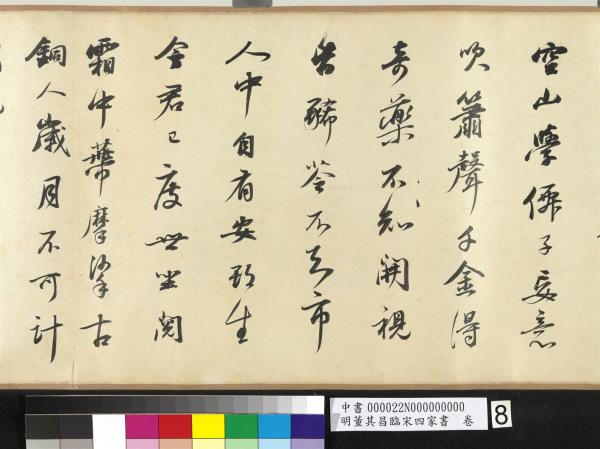 空山學僊子妄意
吹簫聲千金得
奇藥不知開視
皆豨苓不知市
人中自有安期生
今君已度世坐閱
霜中蔕摩挲古
銅人歲月不可計
中書 000022N000000000
明董其昌臨宋四家書 卷
8